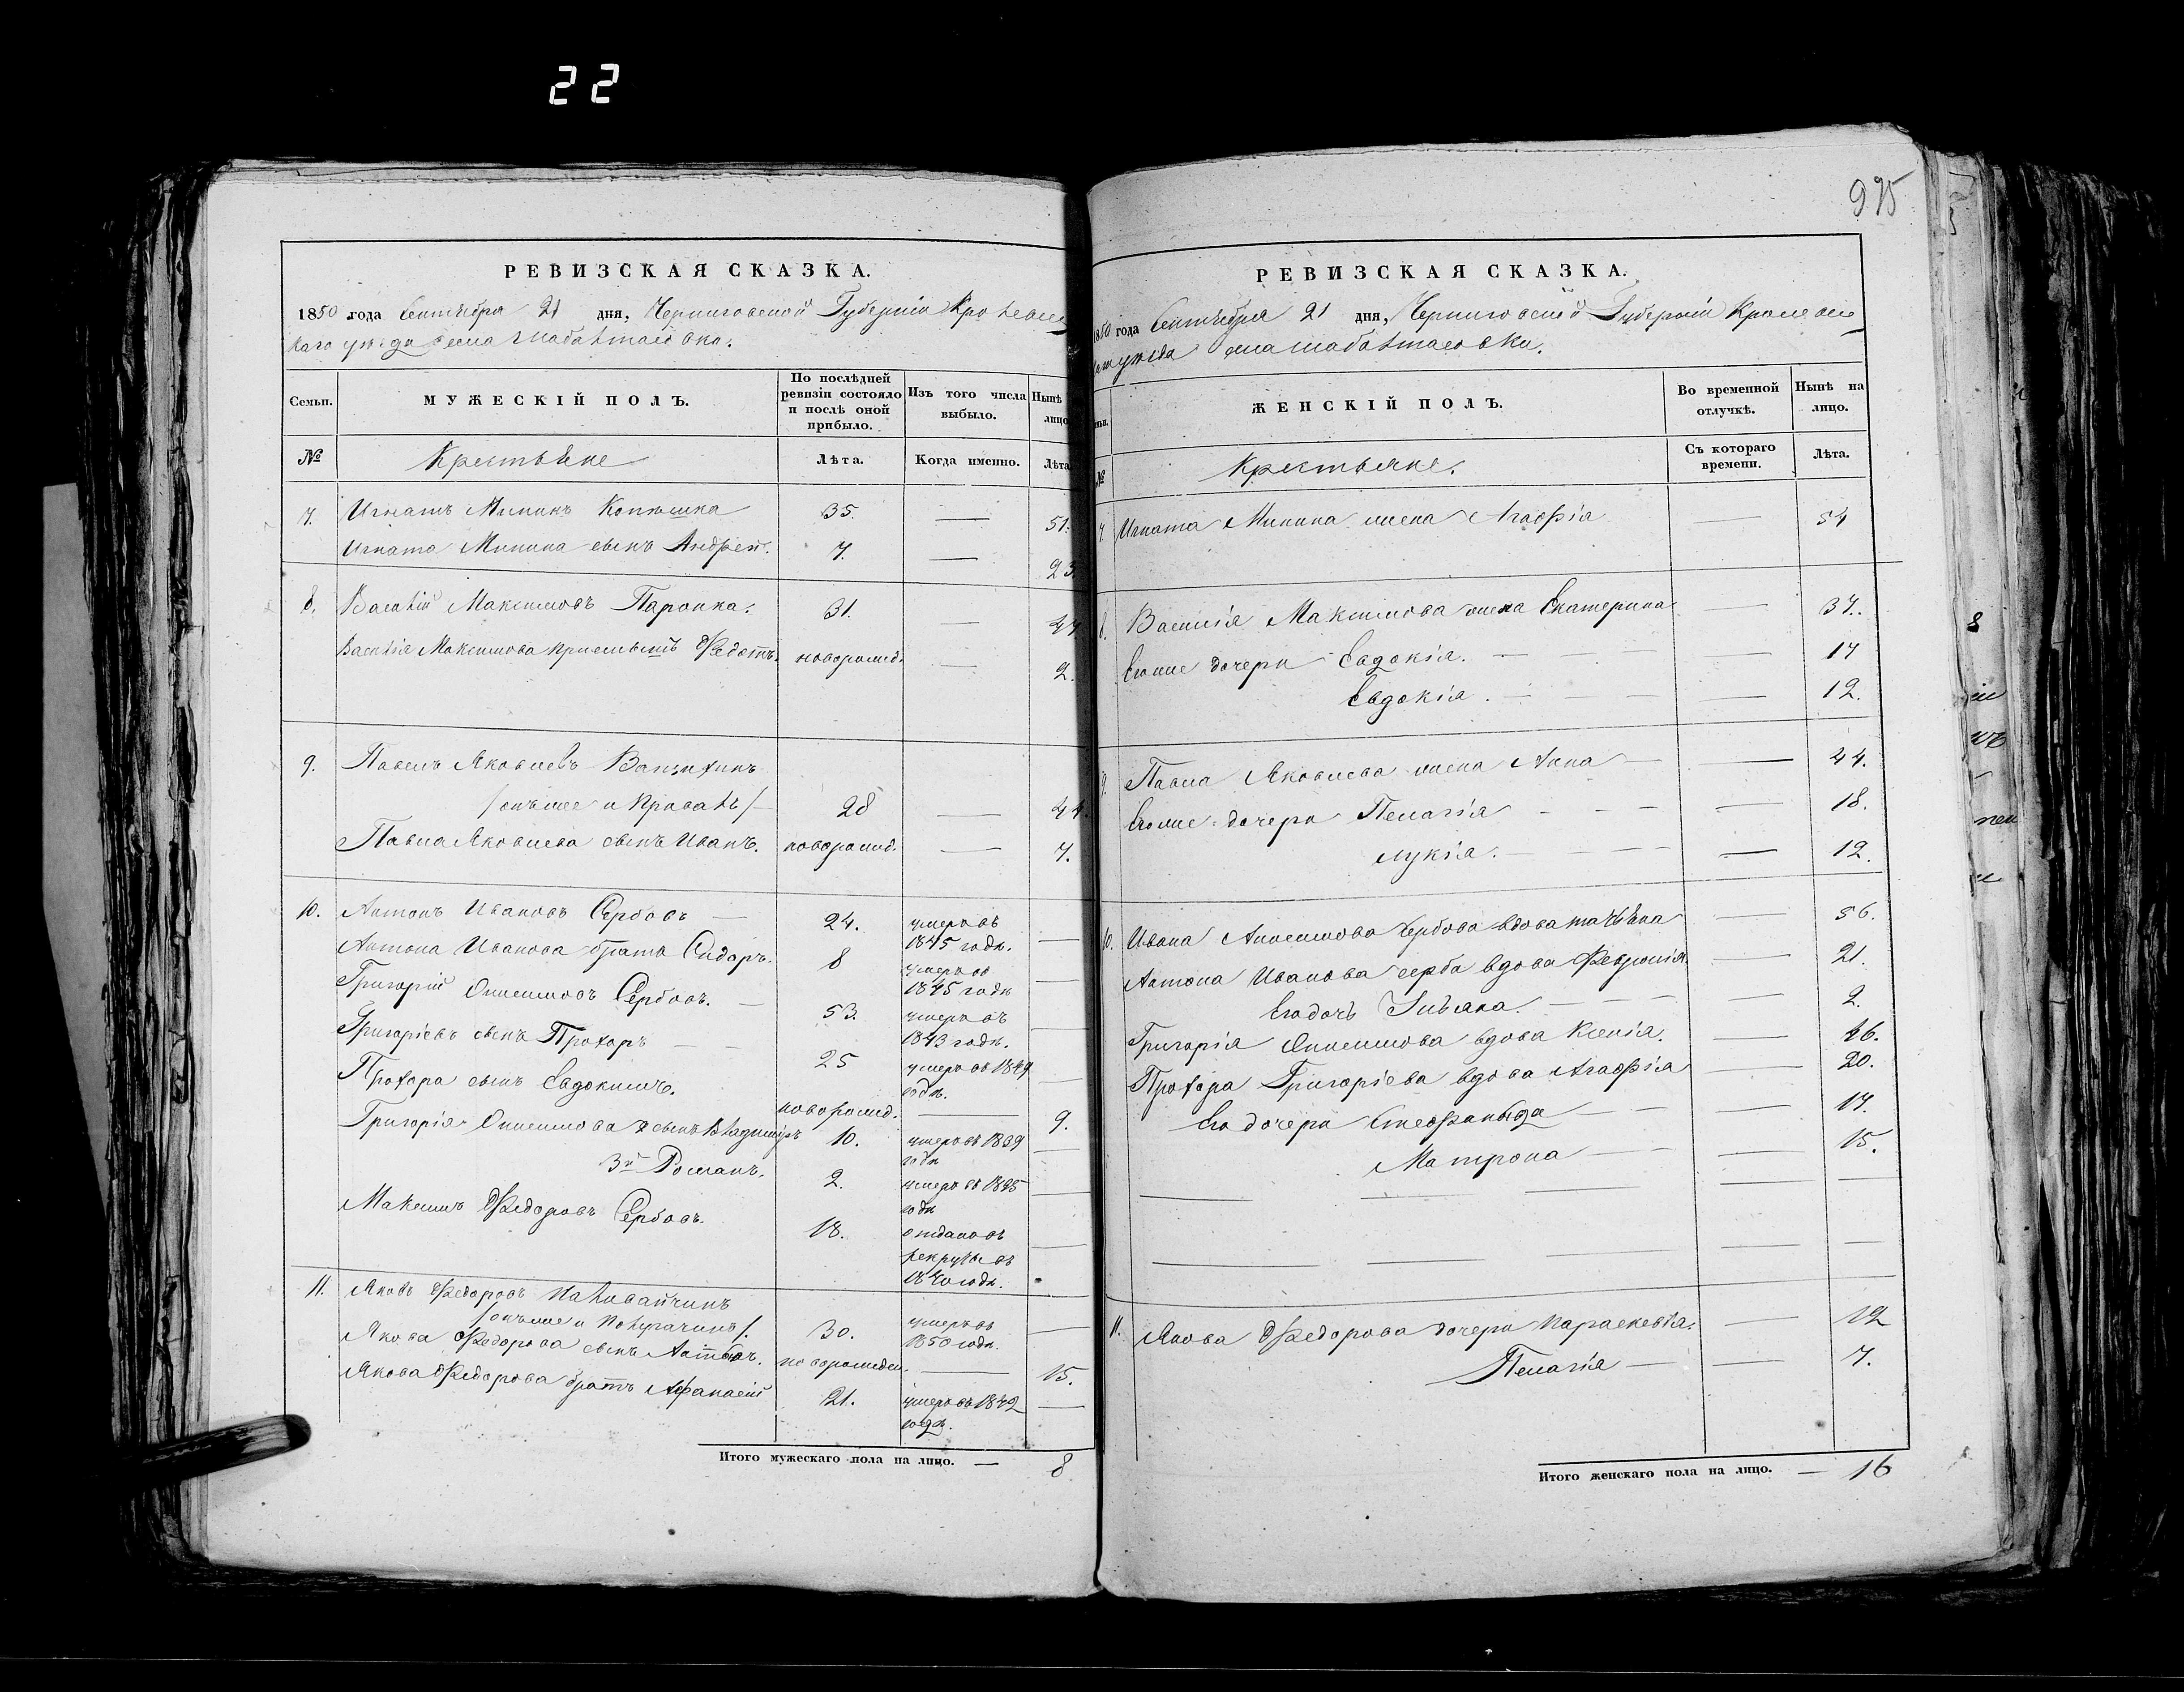 22
995
РЕВИЗСКАЯ СКАЗКА.
1850 года Сентября 21 дня, Черниговской Губернии Кролевец
каго уезда села
Семьи.
МУЖЕСКІЙ ПОЛЪ.
По послѣдней ревизіи состояло и послѣ оной прибыло.
Изъ того числа выбыло.
Нынѣ лицо
№
Крестьяне
Лѣта.
Когда именно.
Лѣта
7. Игнатъ Мининъ 35. — 51.
Игната Минина сынъ Андрей. 7. — 23
8. Василій Максимовъ 31. — 47
Василія Максимова пріемышъ Федотъ. новорожд. — 2.
9. Павелъ Яковлевъ
/онъ же и 28 — 44
Павла Яковлева сынъ Иванъ. новорожд. — 7.
10. Антонъ Ивановъ Сербовъ — 24. умеръ въ 1845 годѣ. —
Антона Иванова братъ Сидоръ. 8 умеръ въ 1845 годѣ —
Григорій Онисимовъ Сербовъ. — 53. умеръ въ 1843 годѣ. —
Григоріевъ сынъ Прохоръ — — 25 умеръ въ 1849 годѣ. —
Прохора сынъ Евдокимъ. новорожд. — 9.
Григорія Онисимова 2 сынъ Владимиръ 10. умеръ въ 1839 годѣ —
3й Романъ. 2. умеръ въ 1835 годѣ —
Максимъ Федоровъ Сербовъ. 18. отданъ въ рекруты въ 1840 годѣ. —
11. Яковъ Федоровъ
/онъ же и 30. умеръ въ 1850 годѣ. —
Якова Федорова сынъ новорожден. — 15.
Якова Федорова братъ Афанасій 21. умеръ въ 1842 годѣ. —
Итого мужескаго пола на лицо. — 8
РЕВИЗСКАЯ СКАЗКА.
1850 года Сентября 21 дня, Черниговской Губерніи Кролевец
уезда села
ЖЕНСКІЙ ПОЛЪ.
Во временной отлучкѣ.
Нынѣ на лицо.
№
Крестьяне.
Съ котораго времени.
Лѣта.
7. Игната Минина жена Агафія — 54
8. Василія Максимова жена Екатерина — 37.
Его же дочери Евдокія. — — — 17
Евдокія. — — — 12.
9. Павла Яковлева жена Анна — — 44.
Его же дочери Пелагія — — — 18.
Лукія. — — — 12.
10. Ивана Онисимова Сербова вдова Татьяна — 56.
Антона Иванова Серба вдова Феврошія — 21.
Его дочь Ульяна. — — — 2.
Григорія Онисимова вдова Ксенія. — 46.
Прохора Григоріева вдова Агафія — 20.
Его дочери Стефанида — — — 17.
Матрона — — — 15.
11. Якова Федорова дочери Параскевія. — 12
Пелагія — — 7.
Итого женскаго пола на лицо. — 16